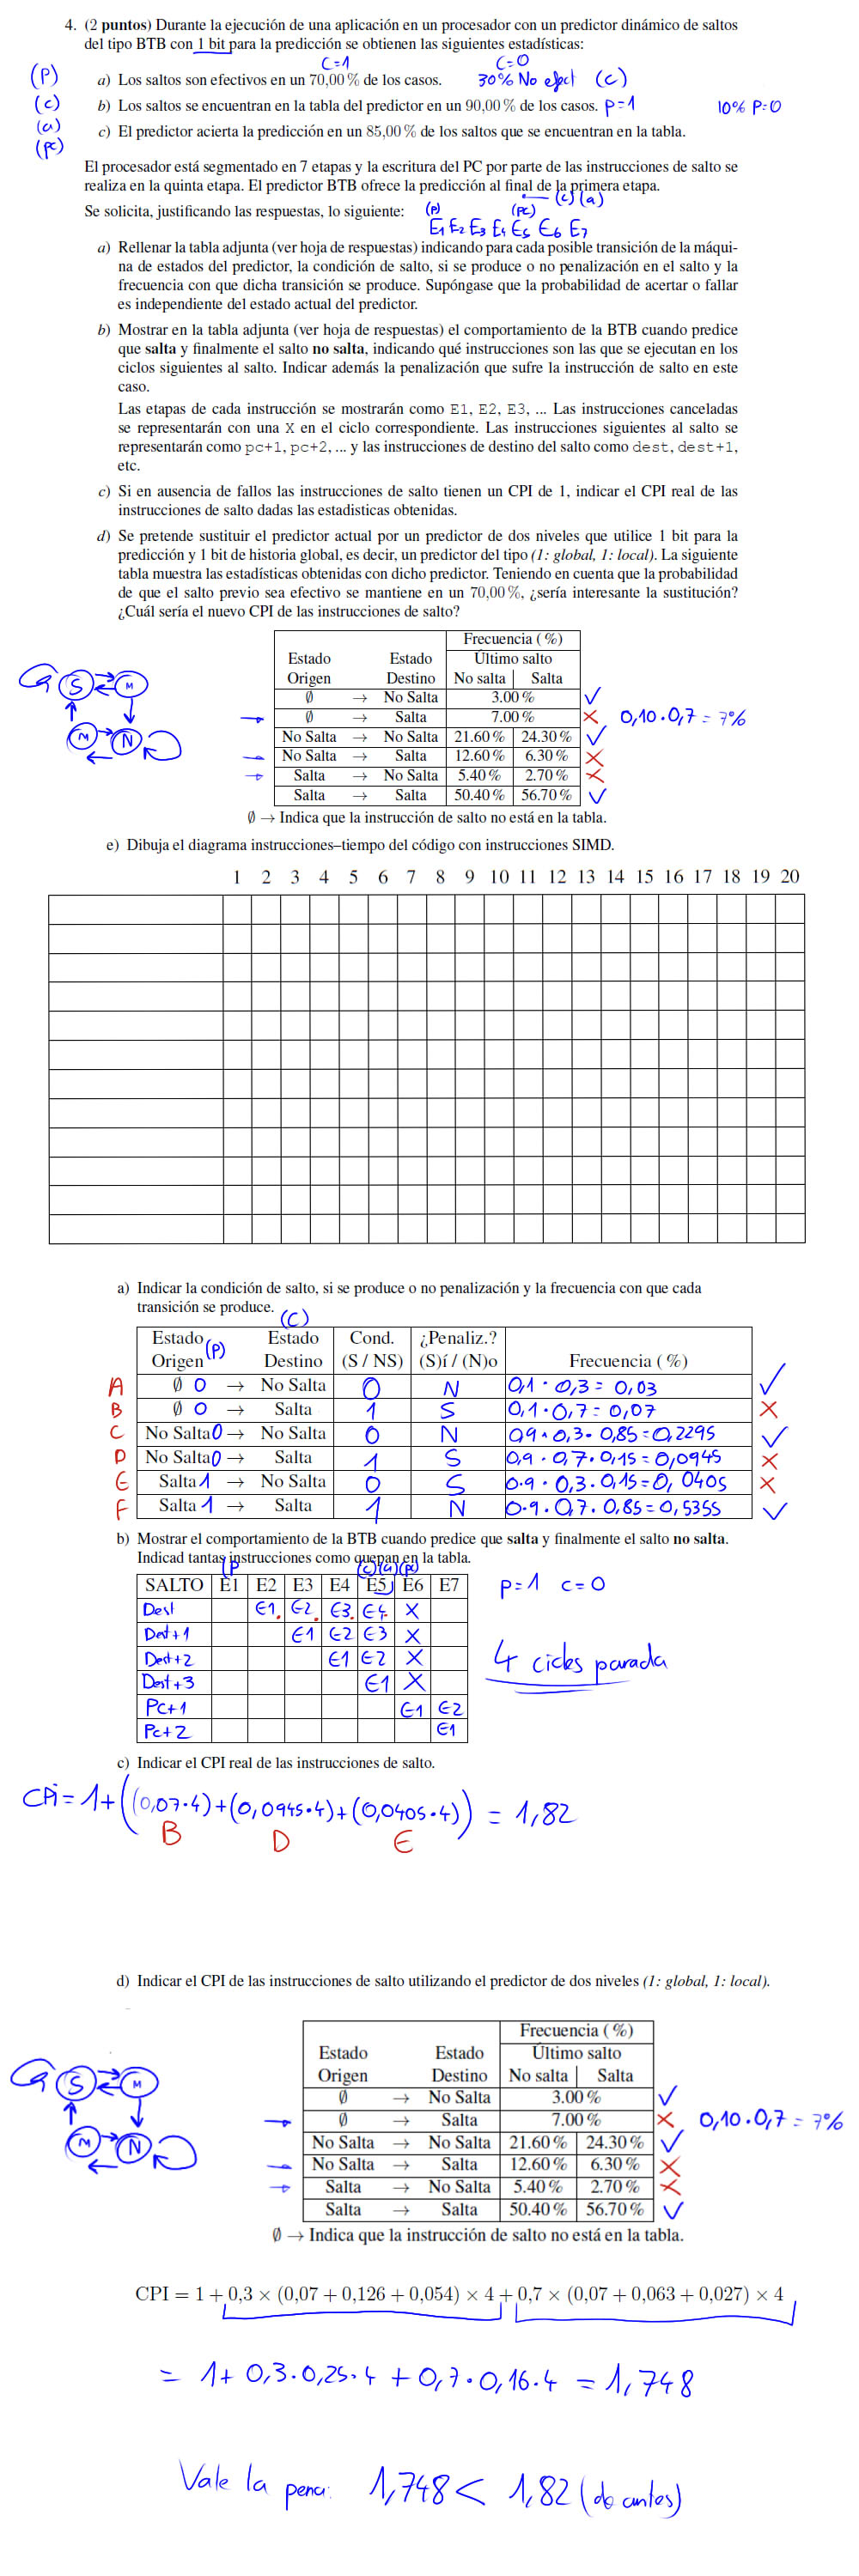 4. (2 puntos) Durante la ejecución de una aplicación en un procesador con un predictor dinámico de saltos
del tipo BTB con 1 bit para la predicción se obtienen las siguientes estadísticas:
C=1 C=0
(P) a) Los saltos son efectivos en un 70,00 % de los casos. 30% No efect (c)
(c) b) Los saltos se encuentran en la tabla del predictor en un 90,00 % de los casos. P=1 10% P=0
(a) c) El predictor acierta la predicción en un 85,00 % de los saltos que se encuentran en la tabla.
(pc)
El procesador está segmentado en 7 etapas y la escritura del PC por parte de las instrucciones de salto se
realiza en la quinta etapa. El predictor BTB ofrece la predicción al final de la primera etapa.
(c) (a)
Se solicita, justificando las respuestas, lo siguiente: (p) (pc)
E1 E2 E3 E4 E5 E6 E7
a) Rellenar la tabla adjunta (ver hoja de respuestas) indicando para cada posible transición de la máqui-
na de estados del predictor, la condición de salto, si se produce o no penalización en el salto y la
frecuencia con que dicha transición se produce. Supóngase que la probabilidad de acertar o fallar
es independiente del estado actual del predictor.
b) Mostrar en la tabla adjunta (ver hoja de respuestas) el comportamiento de la BTB cuando predice
que salta y finalmente el salto no salta, indicando qué instrucciones son las que se ejecutan en los
ciclos siguientes al salto. Indicar además la penalización que sufre la instrucción de salto en este
caso.
Las etapas de cada instrucción se mostrarán como E1, E2, E3, ... Las instrucciones canceladas
se representarán con una X en el ciclo correspondiente. Las instrucciones siguientes al salto se
representarán como pc+1, pc+2, ... y las instrucciones de destino del salto como dest, dest+1,
etc.
c) Si en ausencia de fallos las instrucciones de salto tienen un CPI de 1, indicar el CPI real de las
instrucciones de salto dadas las estadisticas obtenidas.
d) Se pretende sustituir el predictor actual por un predictor de dos niveles que utilice 1 bit para la
predicción y 1 bit de historia global, es decir, un predictor del tipo (1: global, 1: local). La siguiente
tabla muestra las estadísticas obtenidas con dicho predictor. Teniendo en cuenta que la probabilidad
de que el salto previo sea efectivo se mantiene en un 70,00 %, ¿sería interesante la sustitución?
¿Cuál sería el nuevo CPI de las instrucciones de salto?
Frecuencia ( %)
Estado Estado Último salto
Origen Destino No salta Salta
∅ → No Salta 3.00 % ✓
∅ → Salta 7.00 % ✗ 0,10·0,7 = 7%
No Salta → No Salta 21.60 % 24.30 % ✓
No Salta → Salta 12.60 % 6.30 % ✗
Salta → No Salta 5.40 % 2.70 % ✗
Salta → Salta 50.40 % 56.70 % ✓
S M
M N
∅ → Indica que la instrucción de salto no está en la tabla.
e) Dibuja el diagrama instrucciones–tiempo del código con instrucciones SIMD.
1 2 3 4 5 6 7 8 9 10 11 12 13 14 15 16 17 18 19 20
a) Indicar la condición de salto, si se produce o no penalización y la frecuencia con que cada
transición se produce.
(C)
Estado (P) Estado Cond. ¿Penaliz.?
Origen Destino (S / NS) (S)í / (N)o Frecuencia ( %)
A ∅ 0 → No Salta 0 N 0,1 · 0,3 = 0,03 ✓
B ∅ 0 → Salta 1 S 0,1·0,7 = 0,07 ✗
C No Salta 0 → No Salta 0 N 0,9 · 0,3 · 0,85 = 0,2295 ✓
D No Salta 0 → Salta 1 S 0,9 · 0,7 · 0,15 = 0,0945 ✗
E Salta 1 → No Salta 0 S 0.9 · 0,3 · 0,15 = 0,0405 ✗
F Salta 1 → Salta 1 N 0.9 · 0,7 · 0,85 = 0,5355 ✓
b) Mostrar el comportamiento de la BTB cuando predice que salta y finalmente el salto no salta.
Indicad tantas instrucciones como quepan en la tabla.
(P (c) (a) (pc)
SALTO E1 E2 E3 E4 E5 E6 E7 P=1 C=0
Dest E1 E2 E3 E4 X
Dest+1 E1 E2 E3 X
Dest+2 E1 E2 X 4 ciclos parada
Dest+3 E1 X
Pc+1 E1 E2
Pc+2 E1
c) Indicar el CPI real de las instrucciones de salto.
CPI = 1+((0,07·4)+(0,0945·4)+(0,0405·4)) = 1,82
B D E
d) Indicar el CPI de las instrucciones de salto utilizando el predictor de dos niveles (1: global, 1: local).
Frecuencia ( %)
Estado Estado Último salto
Origen Destino No salta Salta
∅ → No Salta 3.00 % ✓
∅ → Salta 7.00 % ✗ 0,10·0,7 = 7%
No Salta → No Salta 21.60 % 24.30 % ✓
No Salta → Salta 12.60 % 6.30 % ✗
Salta → No Salta 5.40 % 2.70 % ✗
Salta → Salta 50.40 % 56.70 % ✓
S M
M N
∅ → Indica que la instrucción de salto no está en la tabla.
CPI = 1 + 0,3 × (0,07 + 0,126 + 0,054) × 4 + 0,7 × (0,07 + 0,063 + 0,027) × 4
= 1 + 0,3·0,25·4 + 0,7·0,16·4 = 1,748
Vale la pena: 1,748 < 1,82 (do antes)